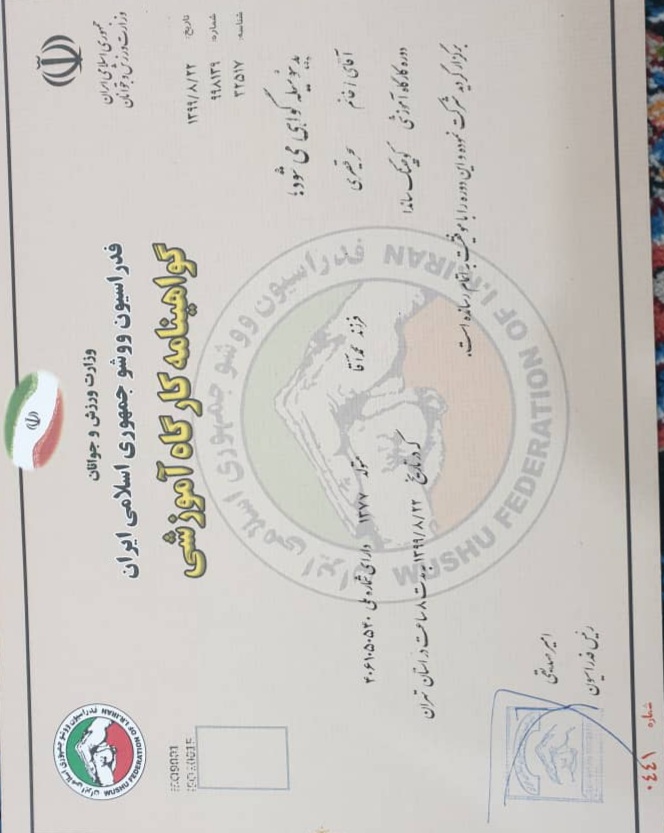 جمهوری اسلامی ایران
وزارت ورزش و جوانان
تاریخ: ۱۳۹۹/۸/۲۲
شماره: ۹۹۸۱۳۹
شناسه: ۲۲۵۱۷
وزارت ورزش و جوانان
فدراسیون ووشو جمهوری اسلامی ایران
گواهینامه کارگاه آموزشی
فدراسیون ووشو جمهوری اسلامی ایران
WUSHU FEDERATION OF I.R.IRAN
ISO9001
بدینوسیله گواهی می شود؛
آقای / خانم فرزند محمدآقا متولد ۱۳۷۷ دارای شماره ملی
دوره کارگاه آموزشی کوچینگ ساندا که در تاریخ ۱۳۹۹/۸/۲۲ به مدت ۸ ساعت در استان تهران
برگزار گردید شرکت نموده و این دوره را با موفقیت به اتمام رسانده است.
فدراسیون ووشو جمهوری اسلامی ایران
WUSHU FEDERATION OF I.R.IRAN
امیر صدیقی
رئیس فدراسیون
شماره ۰۴۴۱